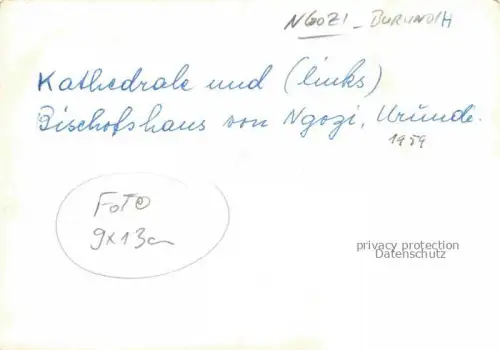 NGOZI - BURUNDI
Kathedrale und (links)
Bischofshaus von Ngozi, Urundi.
1959
FOTO
9x13cm
privacy protection
Datenschutz